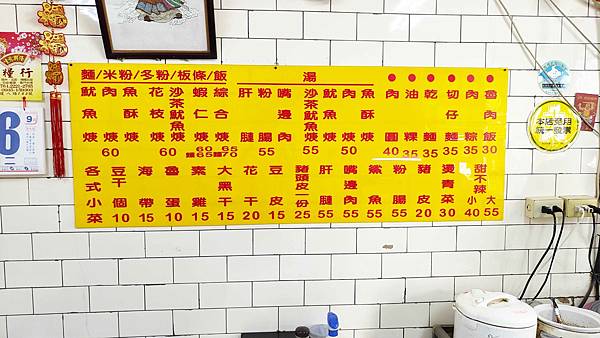 麵/米粉/冬粉/板條/飯
湯
魷魚焿
肉焿
60
魚酥焿
花枝焿
60
沙茶魷魚焿
蝦仁焿
60
麵65
綜合焿
65
麵70
肝腱
粉腸
55
嘴邊肉
沙茶魷魚焿
55
魷魚焿
肉焿
魚酥焿
50
肉圓
40
油粿
35
乾麵
35
切仔麵
35
肉粽
35
魯肉飯
30
各式小菜
豆干個
10
海帶
15
魯蛋
10
素雞
15
大黑干
20
花干
15
豆皮
15
豬頭皮一份
25
肝腱
55
嘴邊肉
55
鯊魚
55
粉腸
55
豬皮
20
燙青菜
30
甜不辣
小 大
40 55
本店免用
統一發票
糧行
9
二